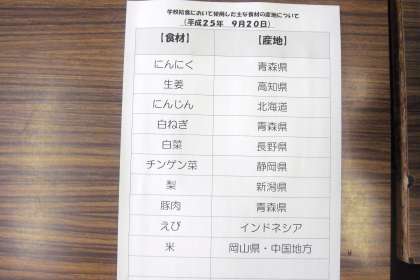 学校給食において使用した主な食材の産地について
(平成25年 9月20日)
【食材】 【産地】
にんにく 青森県
生姜 高知県
にんじん 北海道
白ねぎ 青森県
白菜 長野県
チンゲン菜 静岡県
梨 新潟県
豚肉 青森県
えび インドネシア
米 岡山県・中国地方